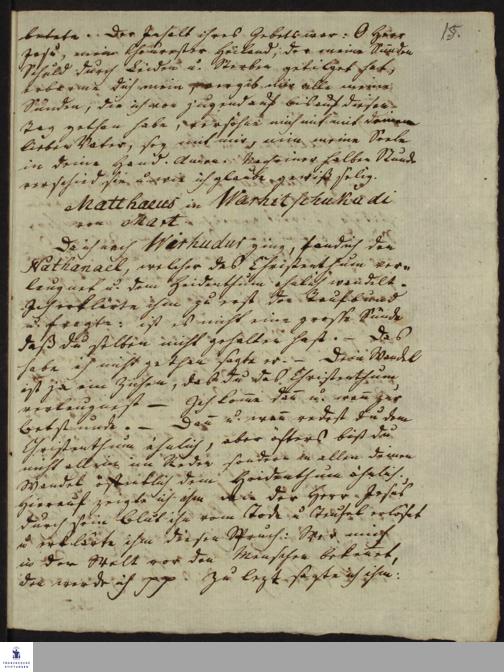 15.
betete. Der Inhalt ihres Gebets war: O Herr
Jesu, mein theuerster Heiland, der meine Sünden
Schuld durch Leiden u. Sterben getilget hat,
erbarme dich mein vergib mir alle meine
Sünden, die ich von Jugend auf bis auf diesen
Tag gethan habe, versöhne mich mit deinem
lieben Vater, sey mit mir, nim meine Seele
in deine Hand. Amen. Nach einer halben Stunde
verschied sie u. wie ich glaube gewiß selig.
Matthaeus in Warhitschukudi
vom Mart.
Da ich nach Warhudur ging, fand ich den
Nathanael, welcher das Christenthum ver-
leugnet u. dem Heidenthum ähnlich wandelt.
Ich erklärte ihm zu erst den Taufbund
u. fragte: ist es nicht eine grosse Sünde
daß du selbigen nicht gehalten hast. — Das
habe ich nicht gethan sagte er. — Dein Wandel
ist ja ein Zeichen, daß du das Christenthum
verleugnest — Ich komme dan u. wan zur
Betstunde. — Dan u. wan redest du dem
Christenthum ähnlich, aber öfters bist du
nicht allein im Reden sondern in allen deinem
Wandel öffentlich dem Heidenthum ähnlich.
Hierauf zeigte ich ihm der Herr Jesus
durch sein Blut ihn vom Tode u. Teufel erlöset
u. erklärte ihm diesen Spruch: Wer mich
in der Welt vor den Menschen bekennet,
den werde ich pp. Zu lezt sagte ich ihm:
FRANCKESCHE
STIFTUNGEN